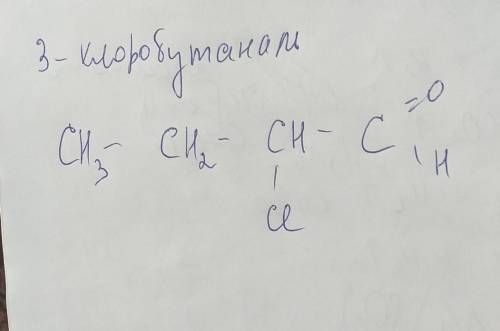 3-клоробутаналь
CH3- CH2- CH - C =O
| \ H
Cl